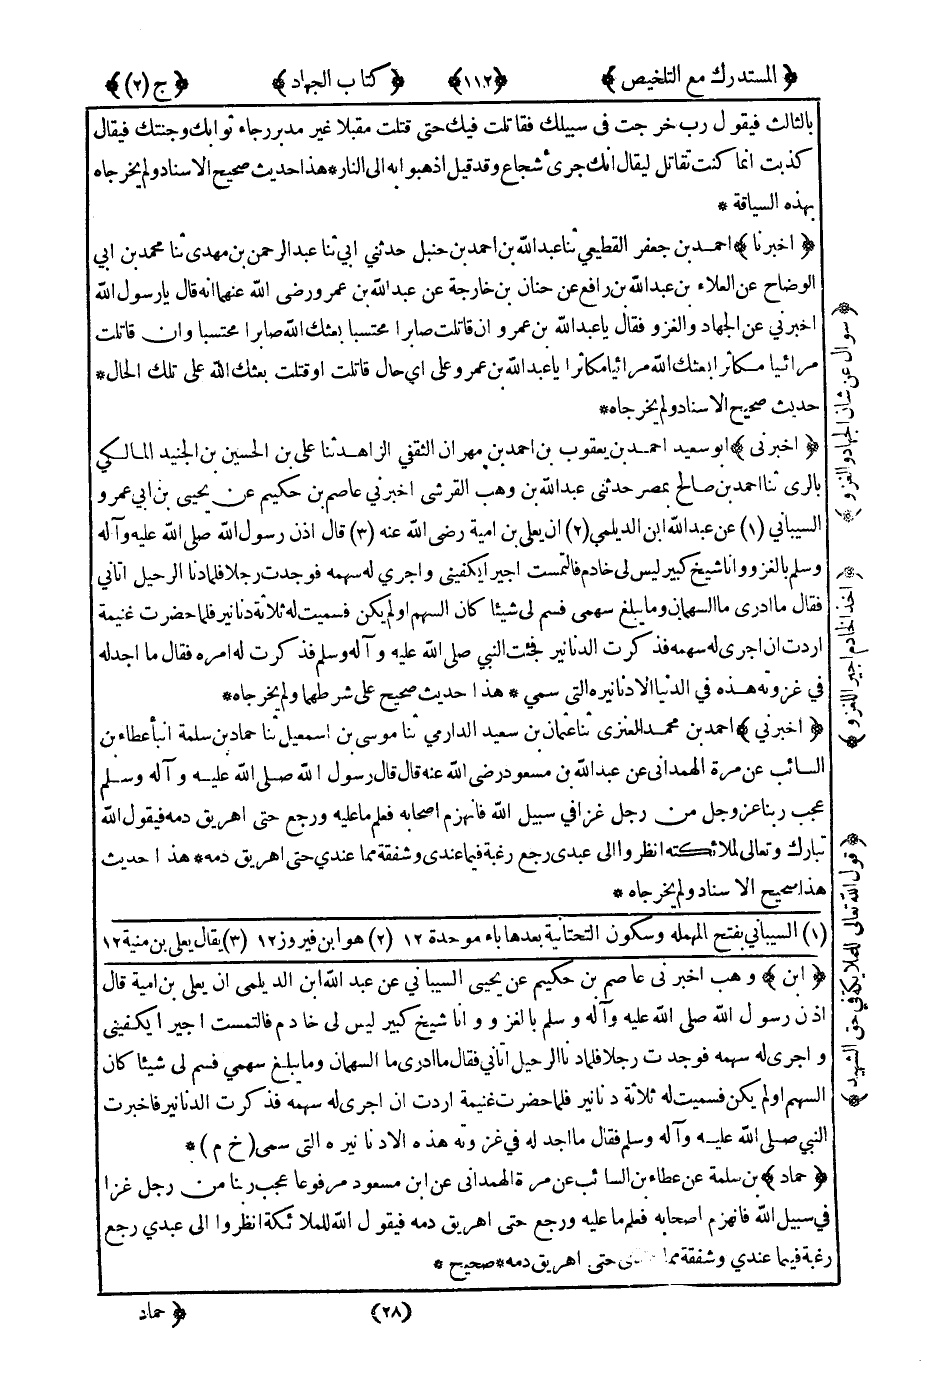 ﴿ المستدرك مع التلخيص ﴾ ﴿١١٢﴾ ﴿ كتاب الجهاد ﴾ ﴿ ج (٢) ﴾
بالثالث فيقول رب خرجت فى سبيلك فقاتلت فيك حتى قتلت مقبلا غير مدبر رجاء ثوابك وجنتك فيقال
كذبت انما كنت تقاتل ليقال انك جرئ شجاع وقد قيل اذهبوا به الى النار * هذا حديث صحيح الاسناد ولم يخرجاه
بهذه السياقة *
﴿ اخبرنا ﴾ احمد بن جعفر القطيعي ثنا عبدالله بن احمد بن حنبل حدثني ابي ثنا عبدالرحمن بن مهدى ثنا محمد بن ابي
الوضاح عن العلاء بن عبدالله بن رافع عن حنان بن خارجة عن عبدالله بن عمرو رضى الله عنهما انه قال يا رسول الله
اخبرني عن الجهاد والغزو فقال يا عبدالله بن عمرو ان قاتلت صابرا محتسبا بعثك الله صابرا محتسبا وان قاتلت
مرائيا مكاثرا بعثك الله مرائيا مكاثرا يا عبدالله بن عمرو على اي حال قاتلت او قتلت بعثك الله على تلك الحال *
حديث صحيح الاسناد ولم يخرجاه *
﴿ اخبرنى ﴾ ابو سعيد احمد بن يعقوب بن احمد بن مهران الثقفي الزاهد ثنا على بن الحسين بن الجنيد المالكي
بالرى ثنا احمد بن صالح بمصر حدثنى عبدالله بن وهب القرشى اخبرني عاصم بن حكيم عن يحيى بن ابي عمرو
السيباني (١) عن عبدالله ابن الديلمي (٢) ان يعلى بن امية رضى الله عنه (٣) قال اذن رسول الله صلى الله عليه وآله
وسلم بالغزو وانا شيخ كبير ليس لى خادم فالتمست اجيرا يكفينى واجري له سهمه فوجدت رجلا فلما دنا الرحيل اتاني
فقال ما ادرى ما السهمان وما يبلغ سهمي فسم لى شيئا كان السهم او لم يكن فسميت له ثلاثة دنانير فلما حضرت غنيمة
اردت ان اجرى له سهمه فذكرت الدنانير فجئت النبي صلى الله عليه وآله وسلم فذكرت له امره فقال ما اجد له
في غزوته هذه في الدنيا الا دنانيره التى سمي * هذا حديث صحيح على شرطهما ولم يخرجاه *
﴿ اخبرني ﴾ احمد بن محمد العنزى ثنا عثمان بن سعيد الدارمي ثنا موسى بن اسمعيل ثنا حماد بن سلمة انبأ عطاء بن
السائب عن مرة الهمدانى عن عبدالله بن مسعود رضى الله عنه قال قال رسول الله صلى الله عليه وآله وسلم
عجب ربنا عز وجل من رجل غزا في سبيل الله فانهزم اصحابه فعلم ما عليه ورجع حتى اهريق دمه فيقول الله
تبارك وتعالى لملائكته انظروا الى عبدى رجع رغبة فيما عندى وشفقة مما عندي حتى اهريق دمه * هذا حديث
هذا صحيح الاسناد ولم يخرجاه *
(١) السيباني بفتح المهمله وسكون التحتانية بعدها باء موحدة ١٢ (٢) هو ابن فيروز ١٢ (٣) يقال يعلى بن منية ١٢
﴿ ابن ﴾ وهب اخبرنى عاصم بن حكيم عن يحيى السيباني عن عبد الله ابن الديلمى ان يعلى بن امية قال
اذن رسول الله صلى الله عليه وآله وسلم بالغزو وانا شيخ كبير ليس لى خادم فالتمست اجيرا يكفينى
واجرى له سهمه فوجدت رجلا فلما دنا الرحيل اتاني فقال ما ادرى ما السهمان وما يبلغ سهمي فسم لى شيئا كان
السهم او لم يكن فسميت له ثلاثة دنانير فلما حضرت غنيمة اردت ان اجرى له سهمه فذكرت الدنانير فاخبرت
النبي صلى الله عليه وآله وسلم فقال ما اجد له في غزوته هذه الا دنانيره التى سمى (خ م) *
﴿ حماد ﴾ بن سلمة عن عطاء بن السائب عن مرة الهمدانى عن ابن مسعود مرفوعا عجب ربنا من رجل غزا
في سبيل الله فانهزم اصحابه فعلم ما عليه ورجع حتى اهريق دمه فيقول الله للملائكة انظروا الى عبدي رجع
رغبة فيما عندي وشفقة مما حتى اهريق دمه * صحيح *
﴿ سوال عن شان الجهاد والغزو ﴾
﴿ اخذ الخادم اجير اللغزو ﴾
﴿ قول الله تعالى للملايكة في حق الشهيد ﴾
(٢٨)
﴿ حماد